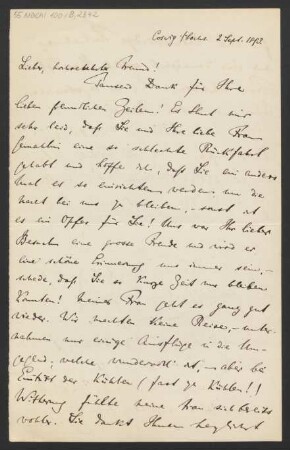 Coswig /Sachs. 2 Sept. 1892
Lieber, hochverehrter Freund!
Tausend Dank für Ihre
lieben freundlichen Zeilen! Es thut mir
sehr leid, daß Sie und Ihre liebe Frau
Gemahlin eine so schlechte Rückfahrt
gehabt und hoffe ich, daß Sie ein anderes
Mal es so einrichten werden, um die
Nacht bei uns zu bleiben, sonst ist
es ein Opfer für Sie! Uns war Ihr lieber
Besuch eine grosse Freude und wird er
eine schöne Erinnerung uns immer sein,
schade, daß Sie so kurze Zeit nur bleiben
konnten! Meiner Frau geht es ganz gut
wieder. Wir machten keine Reisen, unter-
nahmen nur einige Ausflüge in die Um-
gegend, welche wundervoll ist, aber bei
Eintritt der kühlen (fast zu kühlen!!)
Witterung fühlte meine Frau sich bereits
wohler. Sie dankt Ihnen herzlichst